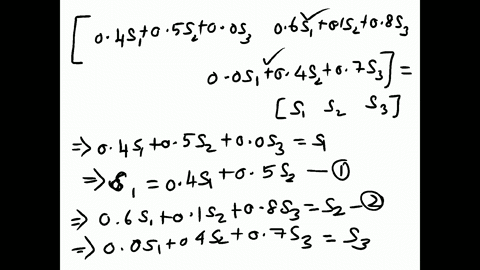 [0.4S₁+0.5S₂+0.0S₃ 0.6S₁+01S₂+0.8S₃
0.0S₁+0.4S₂+0.7S₃] =
[S₁ S₂ S₃]
⇒ 0.4S₁+0.5S₂+0.0S₃ = S₁
⇒ S₁ = 0.4S₁+0.5S₂ — ①
⇒ 0.6S₁+0.1S₂+0.8S₃=S₂ — ②
⇒ 0.0S₁+0.4S₂+0.7S₃ = S₃